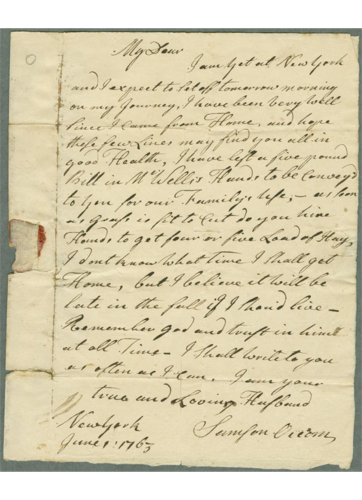 My Dear
I am yet at New York
and I expect to Set off tomorrow morning
on my Journey, I have been Very well
Since I Came from Home, and hope
these few Lines may find you all in
good Health, I have left a five pound
Bill in Mr Wells's Hands to be Convey'd
to you for our Family's Use, – as soon
as Grass is fit to Cut do you hire
Hands to get four or five Load of Hay,
I dont know what Time I shall get
Home, but I believe it will be
late in the fall if I should live –
Remember god and trust in him
at all Time – I Shall write to you
as often as I Can, I am your
true and Loving Husband
Samson Occom
New York
June 1: 1763